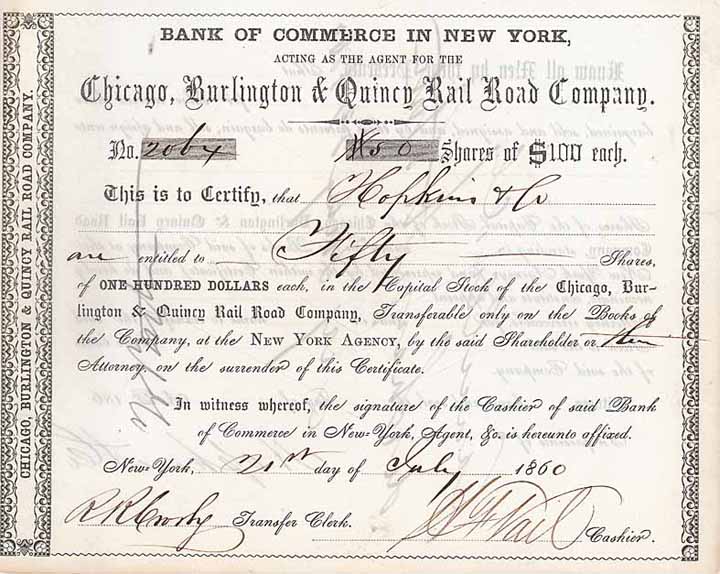 BANK OF COMMERCE IN NEW YORK,
ACTING AS THE AGENT FOR THE
Chicago, Burlington & Quincy Rail Road Company.
No. 2064 50 Shares of $100 each.
This is to Certify, that Hopkins & Co
are entitled to Fifty Shares,
of ONE HUNDRED DOLLARS each, in the Capital Stock of the Chicago, Bur-
lington & Quincy Rail Road Company, Transferable only on the Books of
the Company, at the NEW YORK AGENCY, by the said Shareholder or their
Attorney, on the surrender of this Certificate.
In witness whereof, the signature of the Cashier of said Bank
of Commerce in New-York, Agent, &c. is hereunto affixed.
New-York, 21st day of July 1860
R R Crosby Transfer Clerk. Vail Cashier.
CHICAGO, BURLINGTON & QUINCY RAIL ROAD COMPANY.